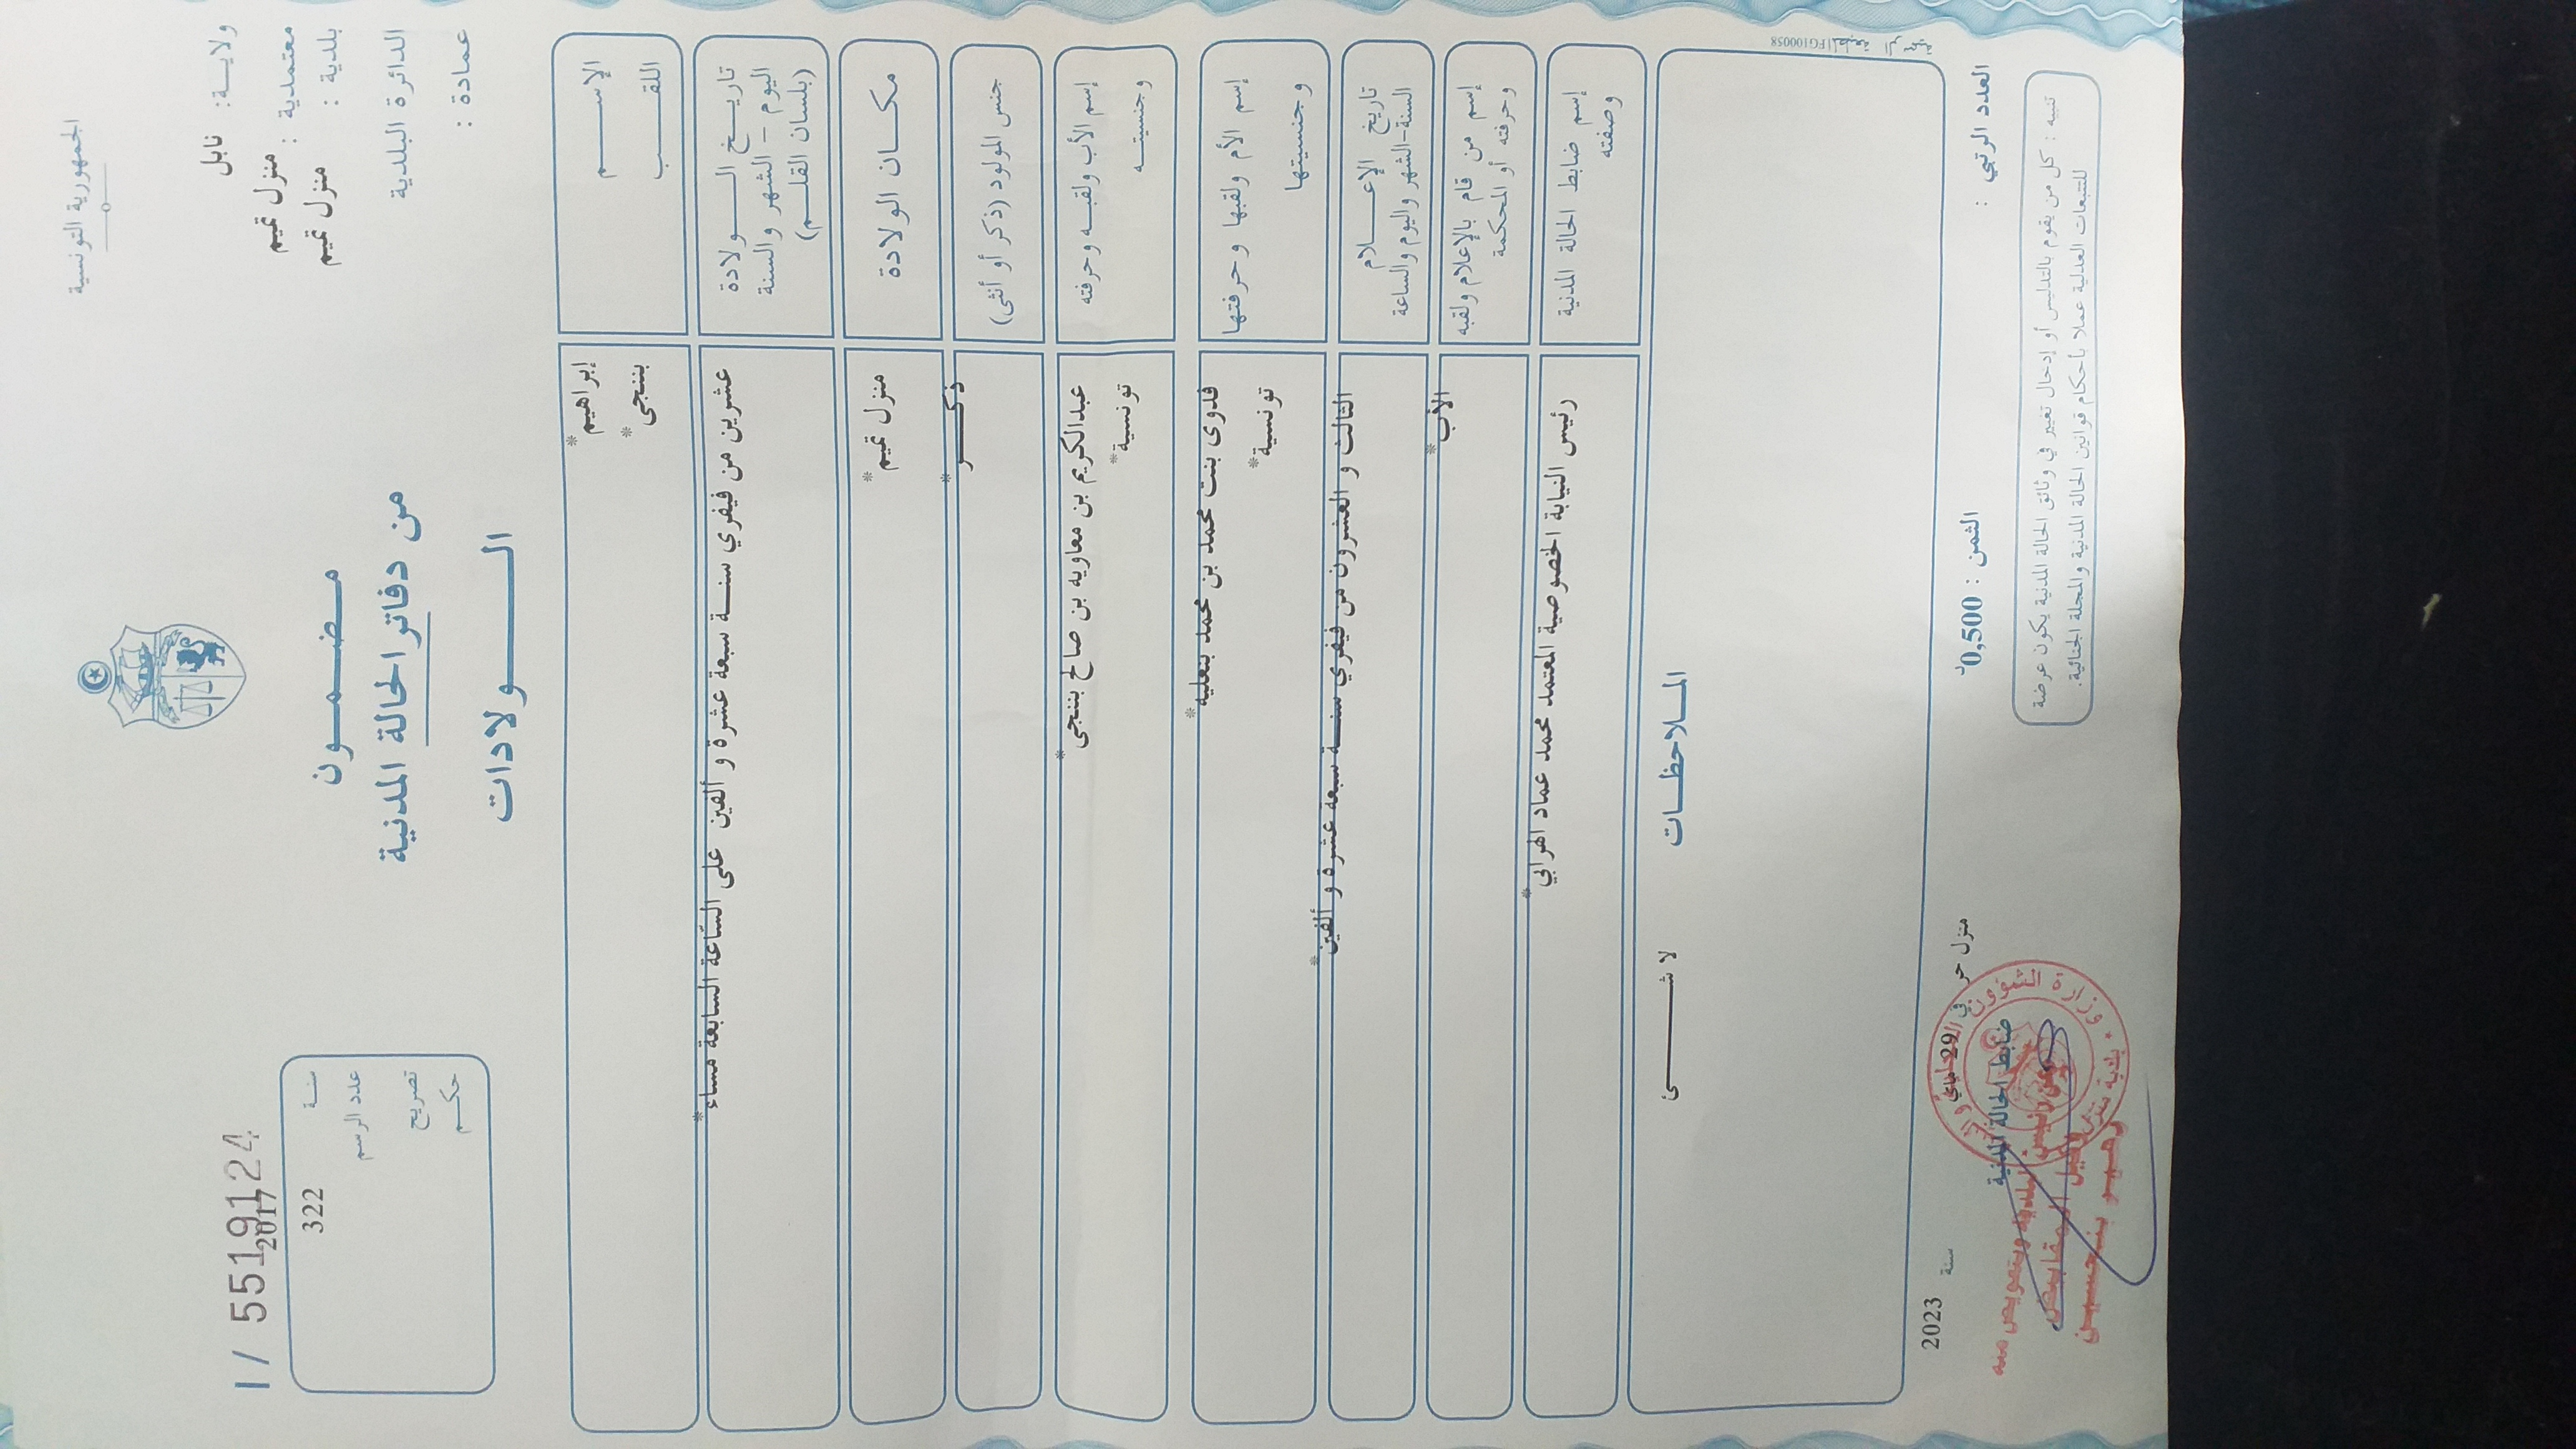 الجمهورية التونسية
ولايـــة: نابل
معتمدية : منزل تميم
بلدية : منزل تميم
الدائرة البلدية
عمادة :
مـضـمـــون
من دفاتر الحالة المدنية
الـــولادات
I / 5519124
سنـة 2017
عدد الرسم 322
تصريح
حكـم
الإســـم
اللقــب
إبراهيم*
بننجى*
تاريــخ الـــولادة
اليوم – الشهر والسنة
(بلسان القلـــم)
عشرين من فيفري سنـــة سبعة عشرة و ألفين على الساعة السابعة مساء*
مكـــان الولادة
منزل تميم*
جنس المولود (ذكر أو أنثى)
ذكـــر*
إسم الأب ولقبـه وحرفته
وجنسيتـه
عبدالكريم بن معاويه بن صالح بننجى*
تونسية*
إسم الأم ولقبها وحرفتها
وجنسيتها
فدوى بنت محمد بن محمد بنعليه*
تونسية*
تاريخ الإعـــلام
السنة-الشهر واليوم والساعة
الثالث و العشرون من فيفري سنـــة سبعة عشرة و ألفين*
إسم من قام بالإعلام ولقبه
وحرفته أو المحكمة
الأب*
إسم ضابط الحالة المدنية
وصفته
رئيس النيابة الخصوصية المعتمد محمد عماد الهرابي*
المـلاحظـــات
لا شـــــئ
FG100058
العدد الرتبي :
الثمن : 0,500د
منزل حر في 29
سنة 2023
ضابط الحالة المدنية
تنبيه : كل من يقوم بالتدليس أو إدخال تغيير في وثائق الحالة المدنية يكون عرضة
للتتبعات العدلية عملا بأحكام قوانين الحالة المدنية والمجلة الجنائية.
وزارة الشؤون